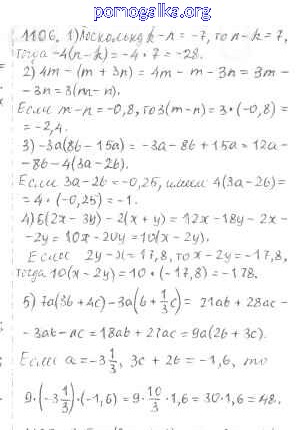 pomogalka.org
1106. 1) Поскольку k-n = -7, то n-k = 7,
тогда -4(n-k) = -4·7 = -28.
2) 4m - (m + 3n) = 4m - m - 3n = 3m -
-3n = 3(m-n).
Если m-n = -0,8, то 3(m-n) = 3·(-0,8) =
= -2,4.
3) -3a(8b - 15a) = -3a - 8b + 15a = 12a -
-8b - 4(3a-2b).
Если 3a-2b = -0,25, имеем 4(3a-2b) =
= 4·(-0,25) = -1.
4) 6(2x - 3y) - 2(x + y) = 12x - 18y - 2x -
-2y = 10x - 20y = 10(x - 2y).
Если 2y - x = 17,8, то x - 2y = -17,8,
тогда 10(x - 2y) = 10·(-17,8) = -178.
5) 7a(3b + 4c) - 3a(b + 1/3 c) = 21ab + 28ac -
-3ab - ac = 18ab + 27ac = 9a(2b + 3c).
Если a = -3 1/3, 3c + 2b = -1,6, то
9·(-3 1/3)·(-1,6) = 9·10/3·1,6 = 30·1,6 = 48.